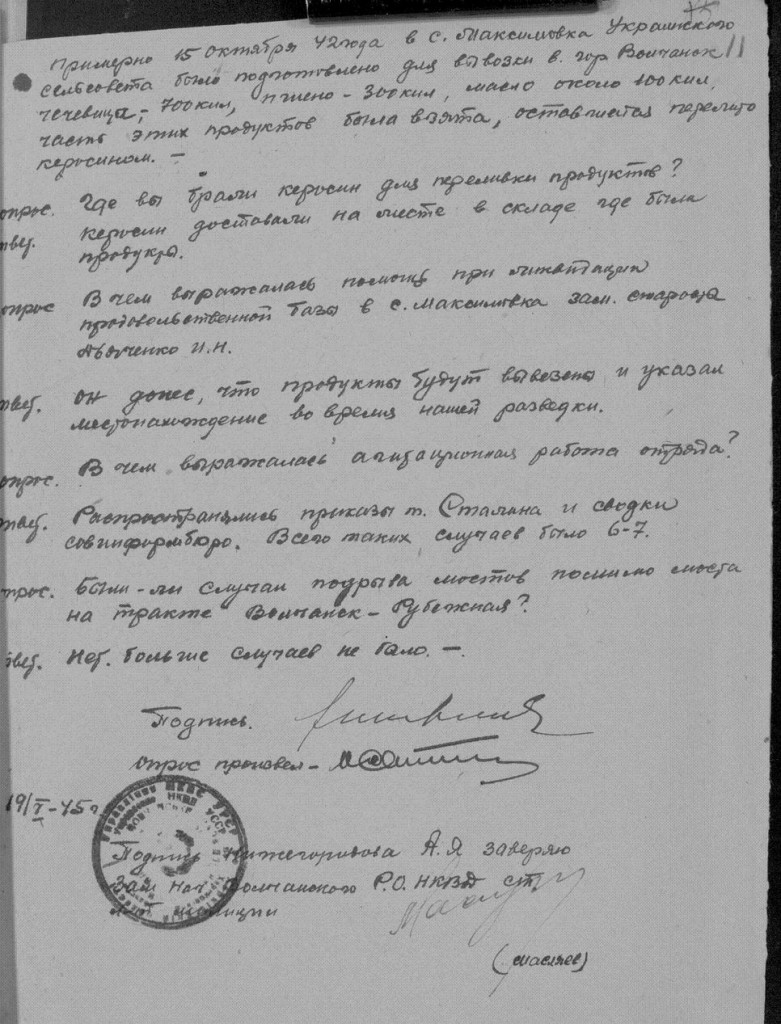 Примерно 15 октября 42 года в с. Максимовка Украинского
сельсовета было подготовлено для вывозки в гор Волчанск
чечевицы, - 700 кил, пшено - 300 кил, масло около 100 кил,
часть этих продуктов была взята, оставшиеся перелито
керосином. -
опрос. Где вы брали керосин для переливки продуктов?
твет. Керосин доставали на месте в складе где были
продукты.
опрос В чем выражалась помощь при ликвидации
продовольственной базы в с. Максимовка зам. старосты
И.Н.
твет. Он донес, что продукты будут вывезены и указал
местонахождение во время нашей разведки.
опрос. В чем выражалась агитационная работа отряда?
твет. Распространялись приказы т. Сталина и сводки
совинформбюро. Всего таких случаев было 6-7.
прос. Были-ли случаи подрыва мостов помимо моста
на тракте Волчанск - Рубежная?
твет. Нет. больше случаев не было. -
Подпись.
опрос произвел -
19/I-45 г
Подпись Нижегородова А.Я заверяю
Зам Нач Волчанского Р.О. НКВД ст.
лейт милиции
(Масляев)